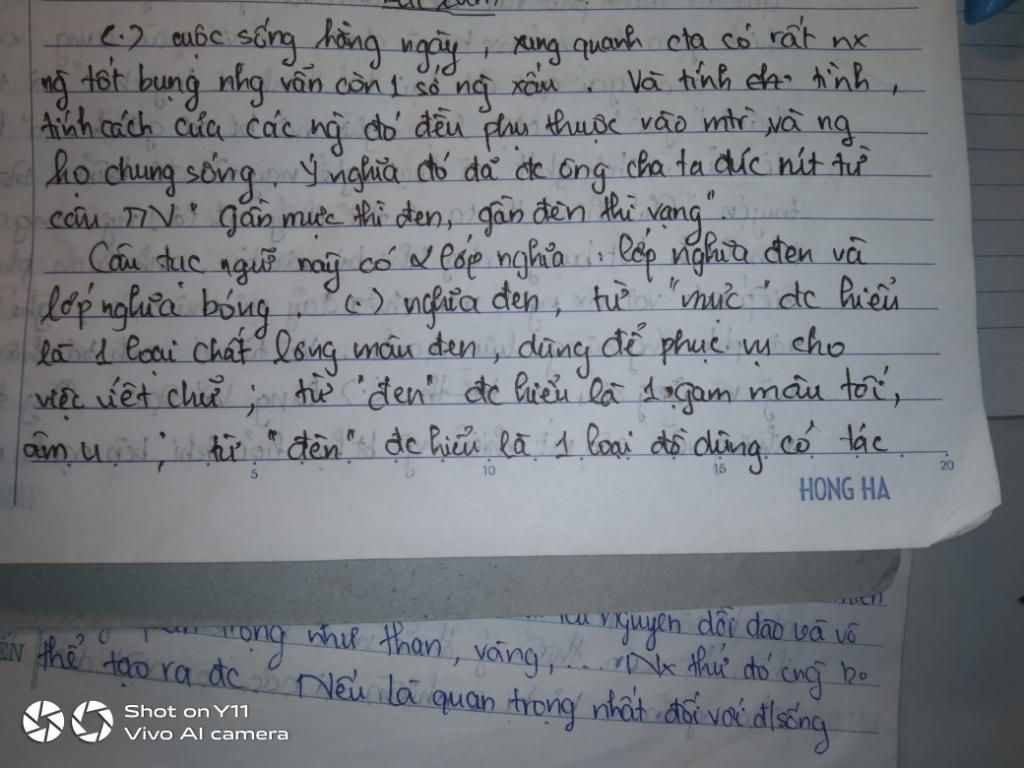 (.) cuộc sống hằng ngày, xung quanh cta có rất nx
ng tốt bụng nhg vẫn còn 1 số ng xấu. Và tính tình,
tính cách của các ng đó đều phụ thuộc vào mtr, và ng
họ chung sống. Ý nghĩa đó đã đc ông cha ta đúc nít từ
câu TNV "Gần mực thì đen, gần đèn thì vạng".
Câu tục ngữ này có 2 lớp nghĩa: lớp nghĩa đen và
lớp nghĩa bóng. (.) nghĩa đen, từ "mực" đc hiểu
là 1 loại chất lỏng màu đen, dùng để phục vụ cho
việc viết chữ; từ "đen" đc hiểu là 1 gam màu tối,
âm u; từ "đèn" đc hiểu là 1 loại đồ dùng có tác
5 10 15 20
HONG HA
nguyên dồi dào và vô
trọng như than, vàng, ... thứ đó cng ko
thể tạo ra đc. Nếu là quan trọng nhất đối với đ/sống
Shot on Y11
Vivo AI camera